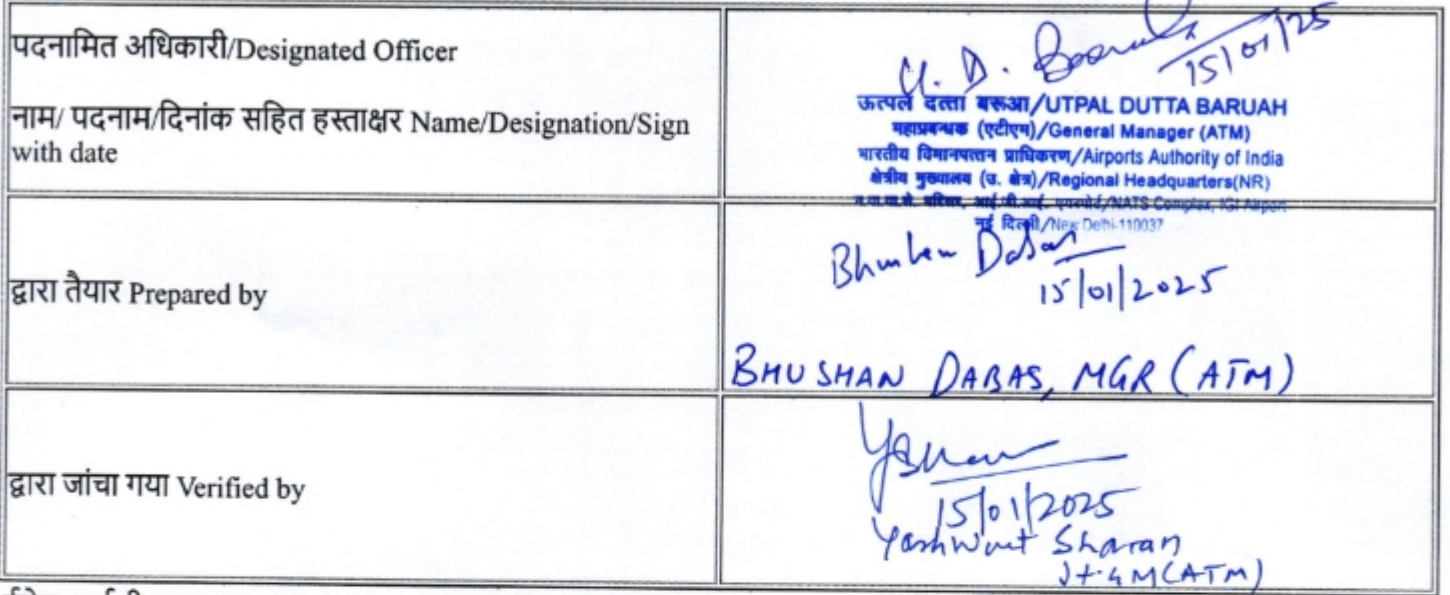 पदनामित अधिकारी/Designated Officer
नाम/ पदनाम/दिनांक सहित हस्ताक्षर Name/Designation/Sign
with date
U. D. Baruah
15/01/25
ऊत्पल दत्ता बरूआ/UTPAL DUTTA BARUAH
महाप्रबन्धक (एटीएम)/General Manager (ATM)
भारतीय विमानपत्तन प्राधिकरण/Airports Authority of India
क्षेत्रीय मुख्यालय (उ. क्षेत्र)/Regional Headquarters(NR)
परिसर, आई.जी.आई. एयरपोर्ट/NATS Complex, IGI Airport
नई दिल्ली/New Delhi-110037
द्वारा तैयार Prepared by
Bhushan Dabas
15/01/2025
BHUSHAN DABAS, MGR (ATM)
द्वारा जांचा गया Verified by
15/01/2025
Yashwant Sharan
Jt. GM (ATM)